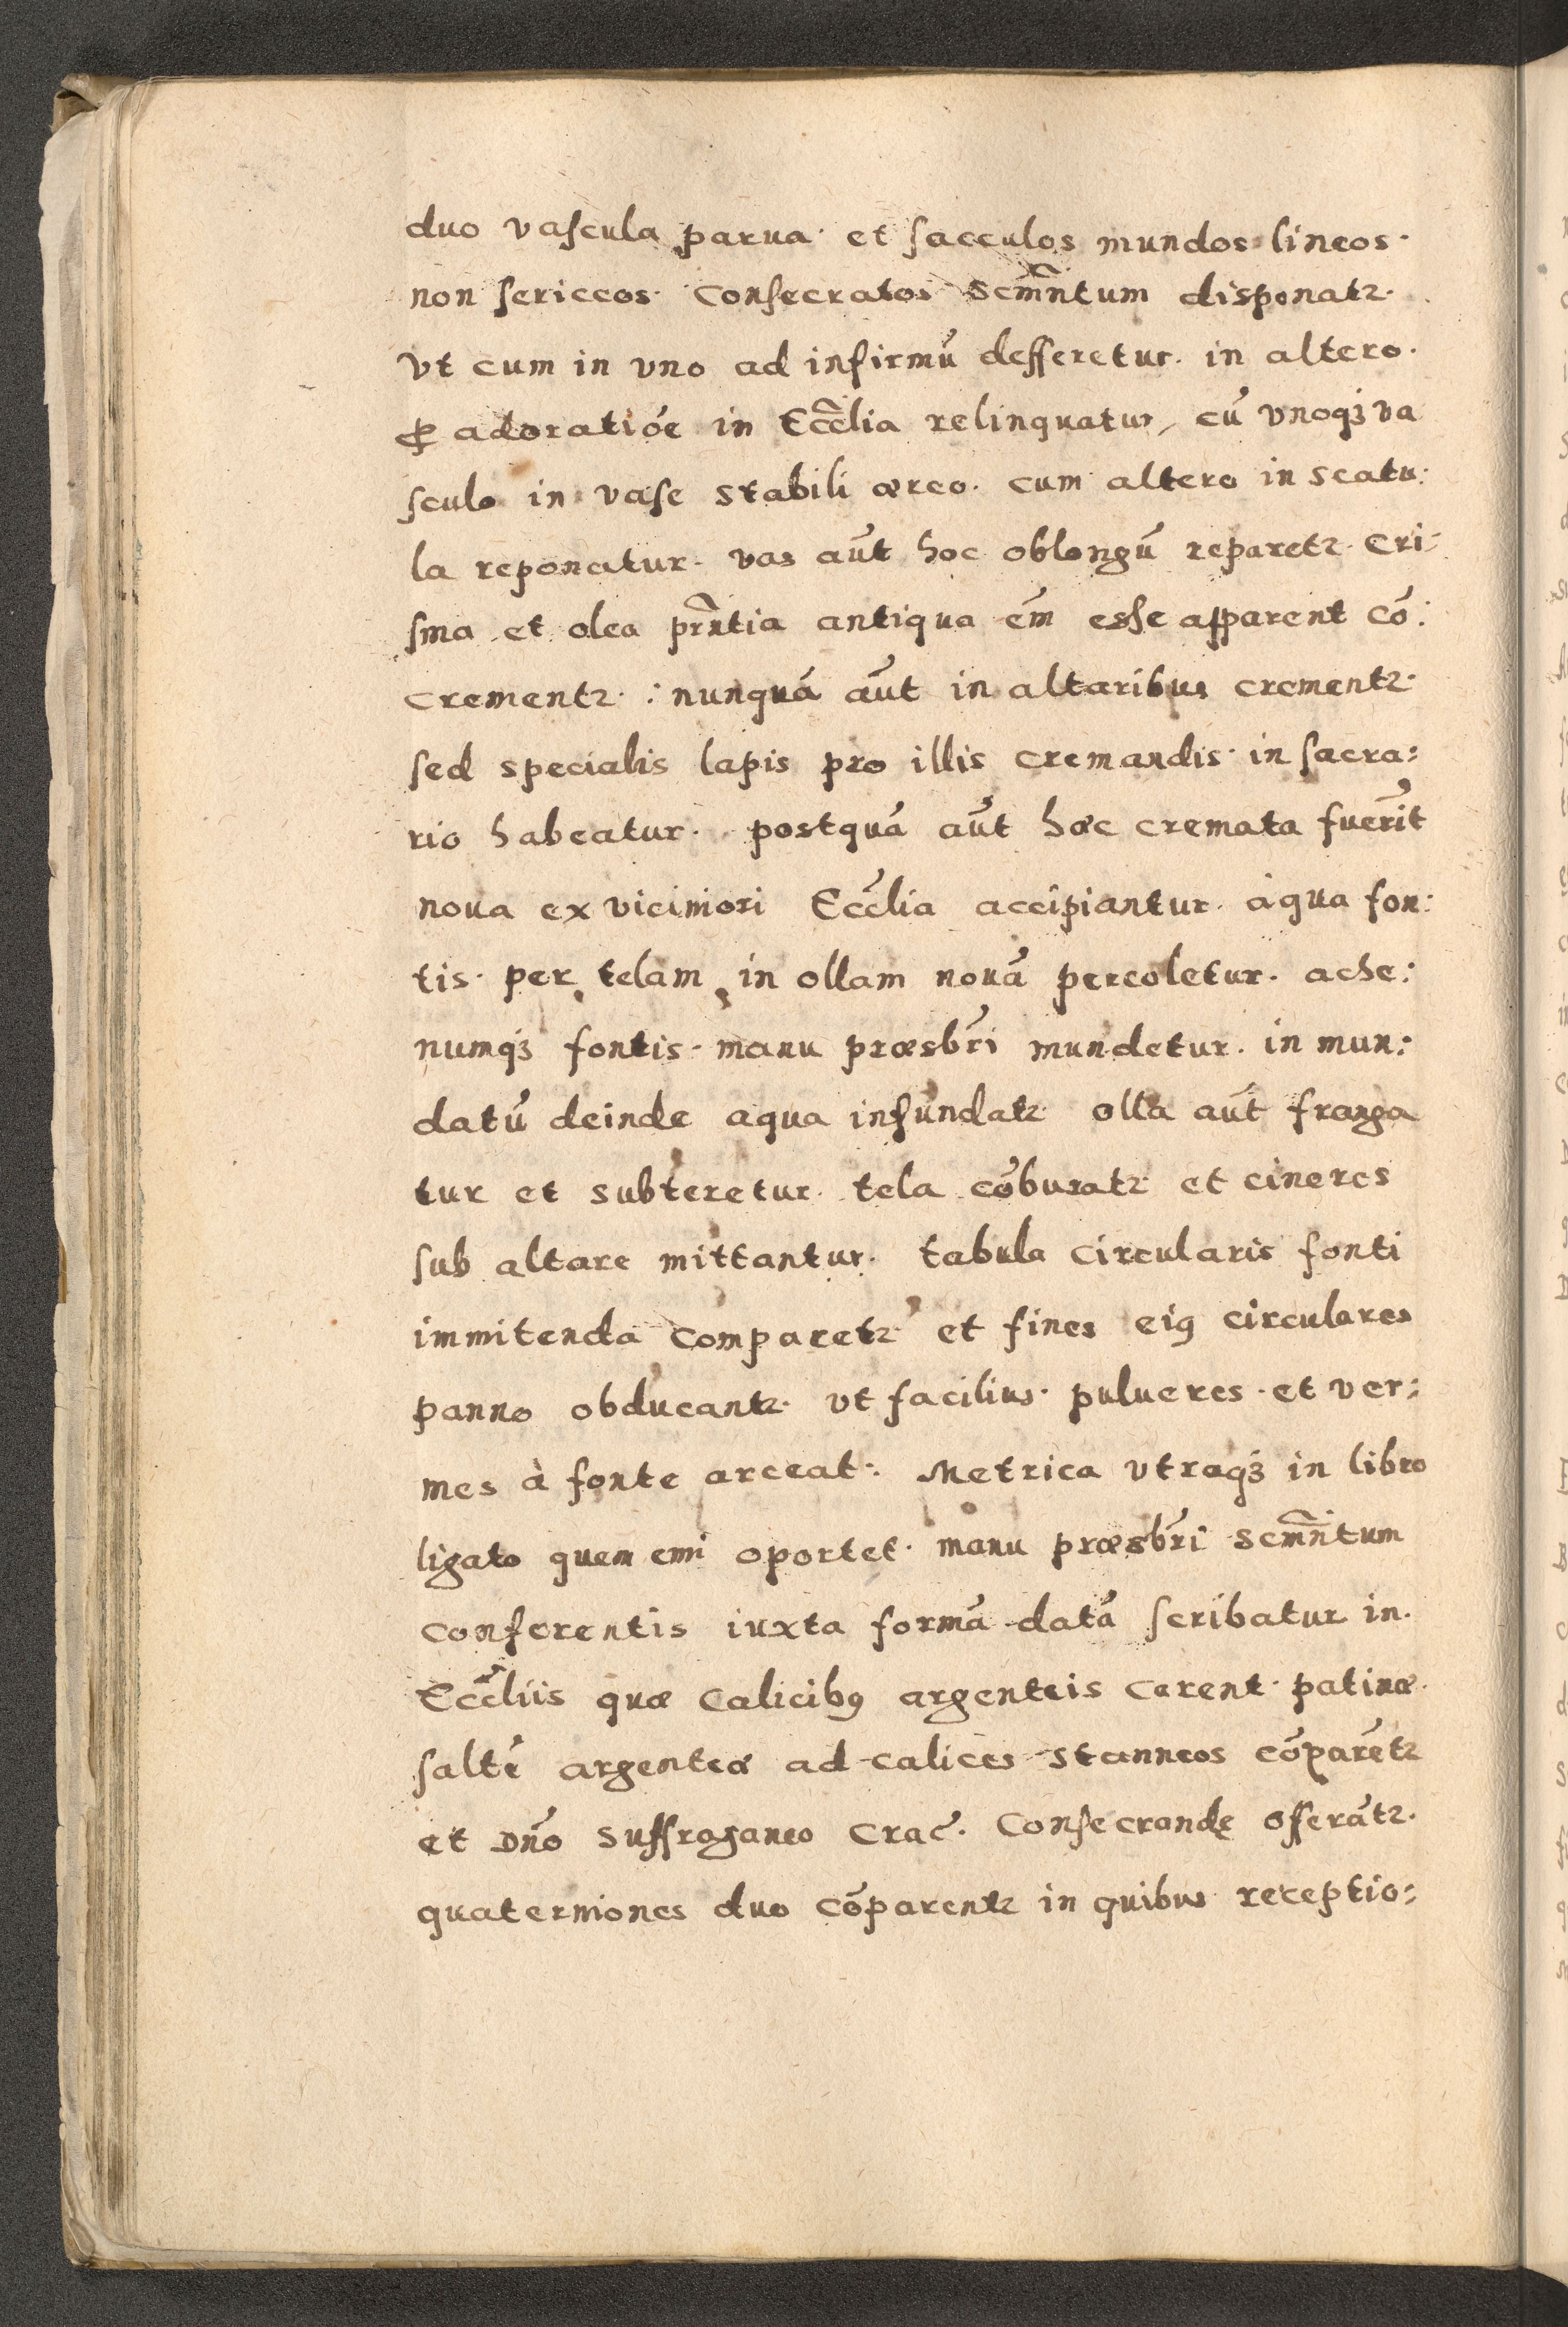 duo vascula parua. et sacculos mundos lineos.
non sericeos. Consecratos Scmñtum disponatr.
Vt cum in vno ad infirmũ defferetur. in altero.
ꝓ adoratiõe in Ecclia relinquatur, cũ vnoqꝫ va
sculo in vase stabili æreo. cum altero in scatu:
la reponatur. vas aũt hoc oblongũ reparetr. Cri:
sma et olea prñtia antiqua em̃ esse apparent cõ:
crementr. : nunquã aũt in altaribus crementr.
sed specialis lapis pro illis cremandis. in sacra:
rio habeatur. postquã aũt hæc cremata fuerĩt
noua ex viciniori Ecclia accipiantur. aqua fon:
tis. per telam in ollam nouã percoletur. ache:
numqꝫ fontis. manu præsbri mundetur. in mun:
datũ deinde aqua infundatr olla aũt franga
tur et subteretur. tela cõburatr et cineres
sub altare mittantur. tabula circularis fonti
immitenda comparetr et fines eiꝯ circulares
panno obducantr. vt facilius. pulueres. et ver:
mes à fonte arceat:. Metrica vtraqꝫ in libro
ligato quem emi oportet. manu præsbri Scmñtum
conferentis iuxta formã datã scribatur in.
Eccliis quæ Calicibꝯ argenteis carent. patinæ.
saltẽ argenteæ ad calices stanneos cõparẽtr
et Dño Suffraganeo Crac̃. Consecrandę offerãtr.
quaterniones duo cõparentr in quibus receptio: